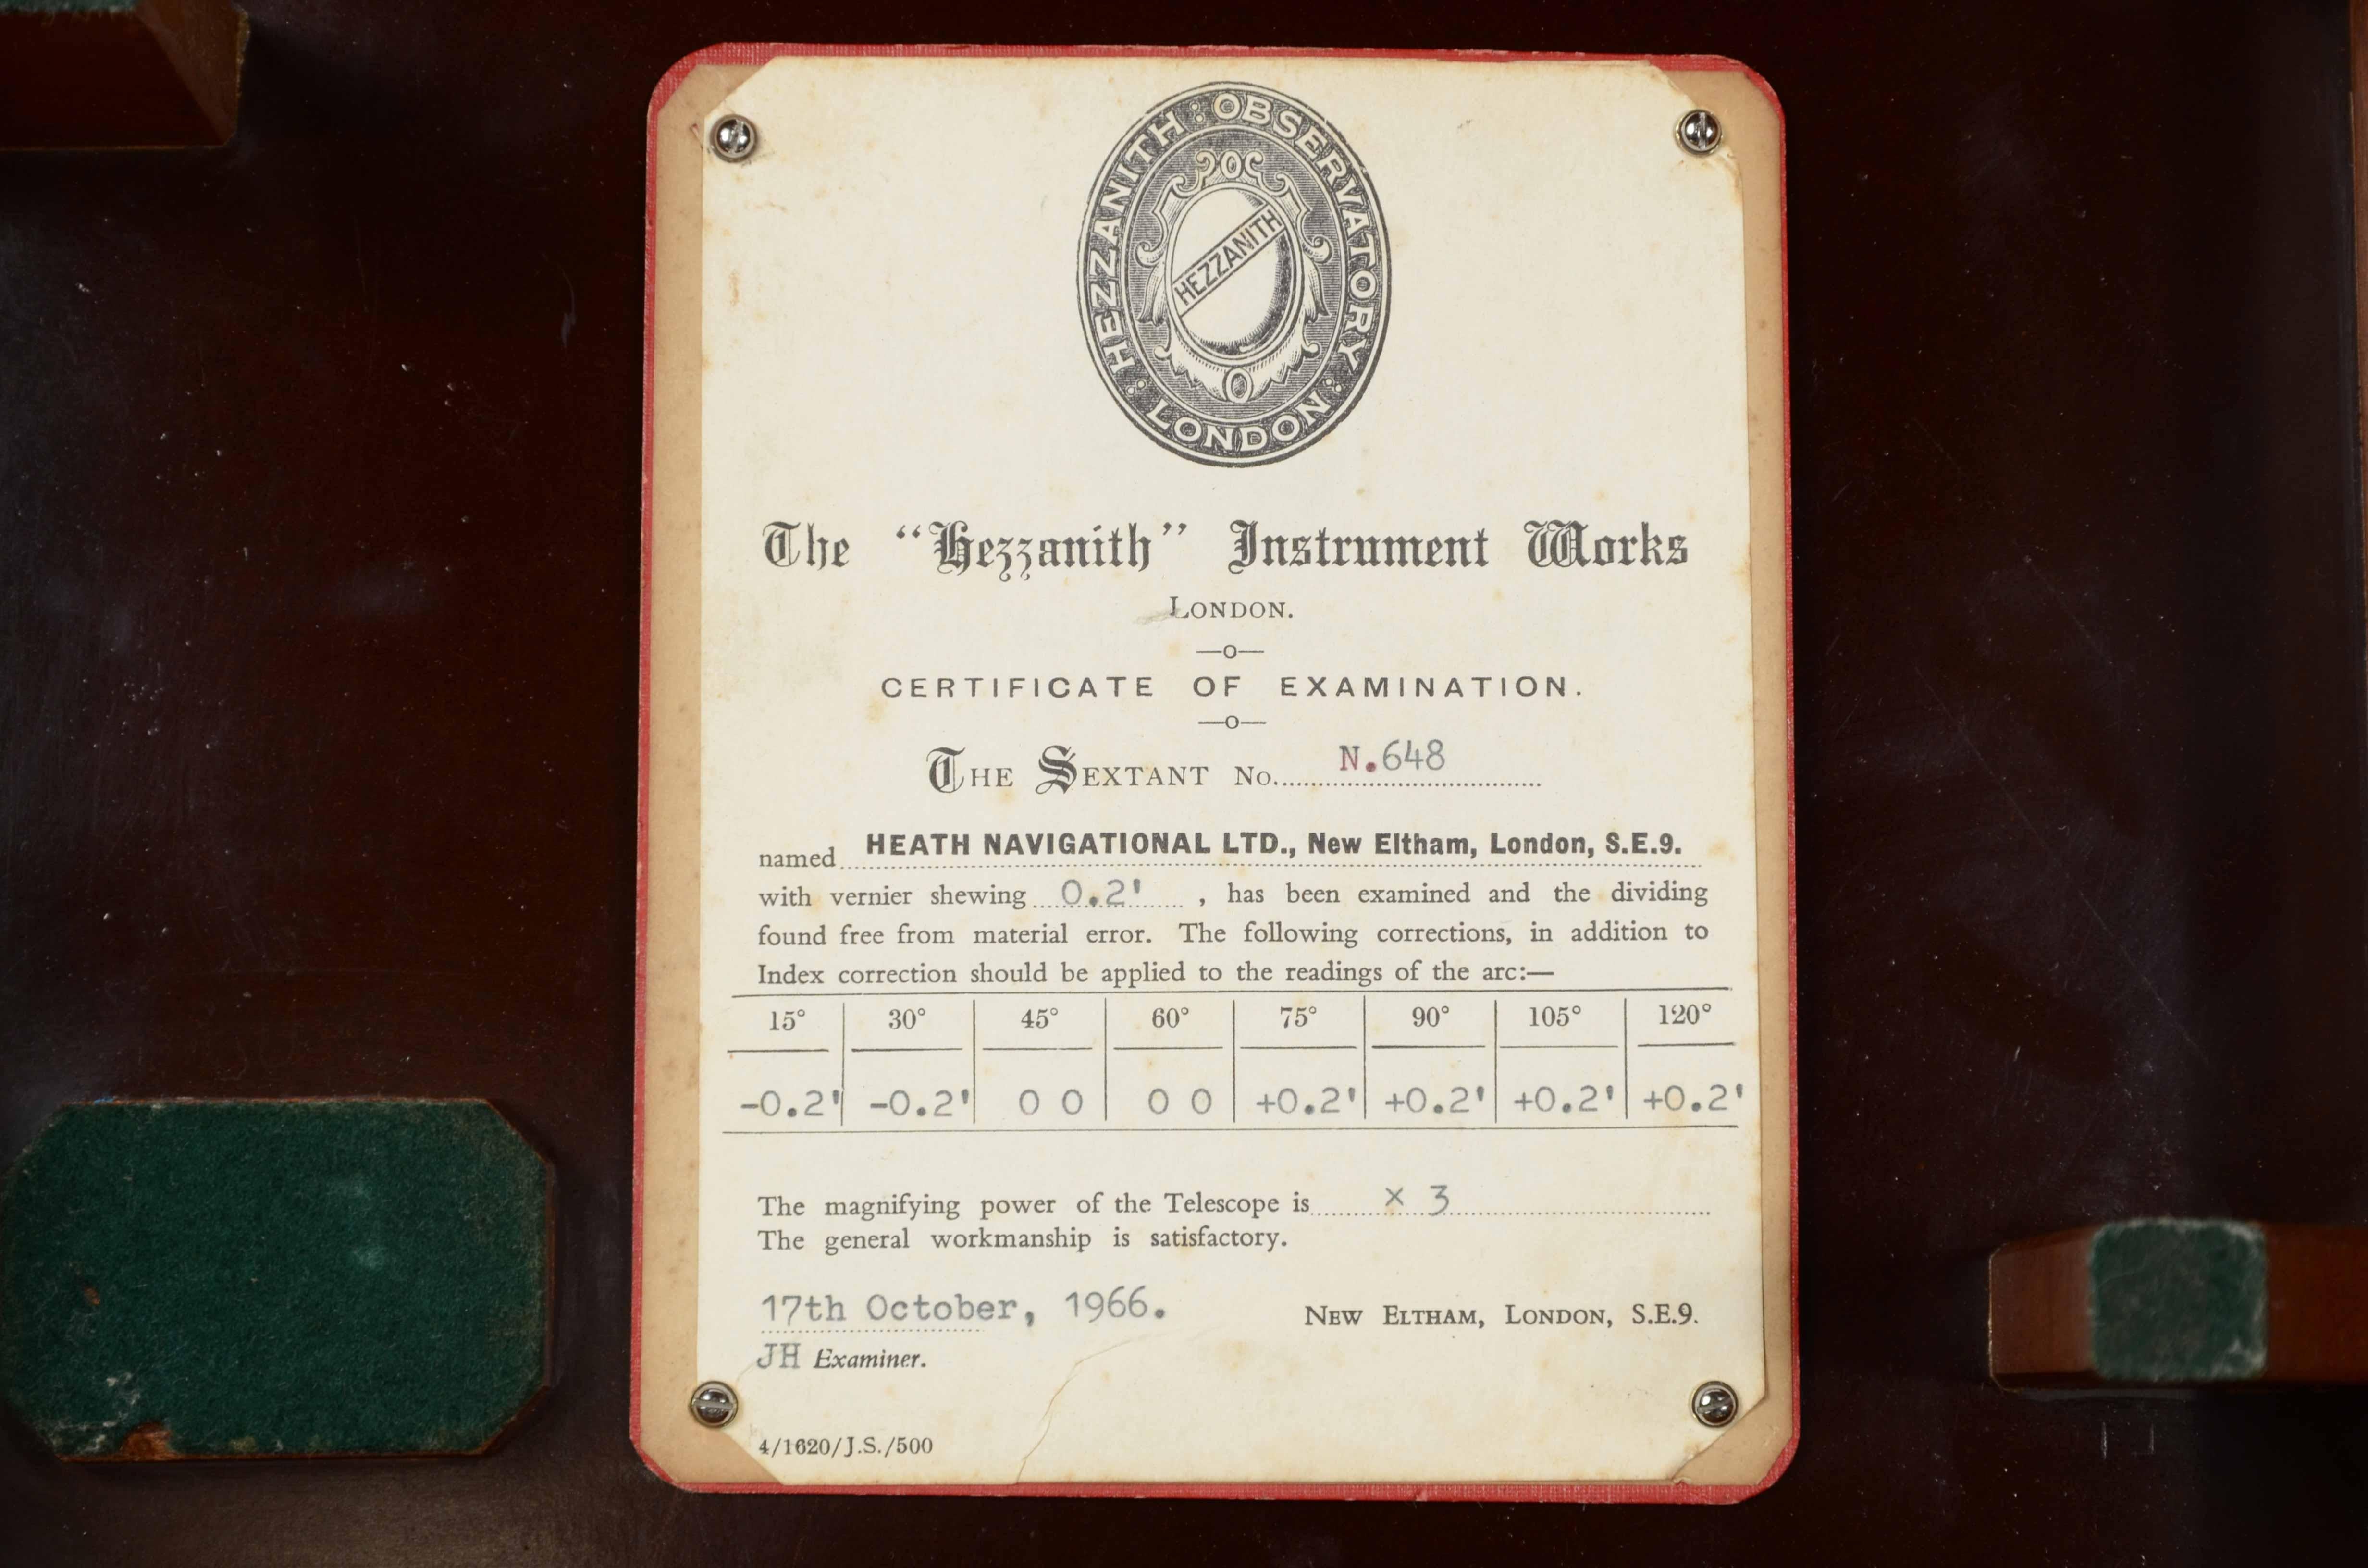 HEZZANITH : OBSERVATORY : LONDON :
HEZZANITH
The "Hezzanith" Instrument Works
LONDON.
—o—
CERTIFICATE OF EXAMINATION.
—o—
THE SEXTANT No. N.648
named HEATH NAVIGATIONAL LTD., New Eltham, London, S.E.9.
with vernier shewing 0.2' , has been examined and the dividing
found free from material error. The following corrections, in addition to
Index correction should be applied to the readings of the arc:—
15° 30° 45° 60° 75° 90° 105° 120°
-0.2' -0.2' 0 0 0 0 +0.2' +0.2' +0.2' +0.2'
The magnifying power of the Telescope is x 3
The general workmanship is satisfactory.
17th October, 1966. NEW ELTHAM, LONDON, S.E.9.
JH Examiner.
4/1620/J.S./500